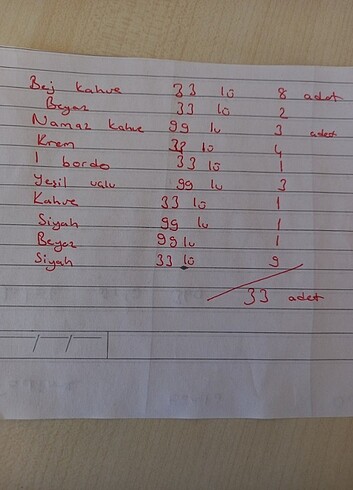 Bej kahve 33 lü 8 adet
Beyaz 33 lü 2
Namaz kahve 99 lu 3 adet
Krem 33 lü 4
1 bordo 33 lü 1
Yeşil 99 lu 3
Kahve 33 lü 1
Siyah 99 lu 1
Beyaz 99 lu 1
Siyah 33 lü 9
33 adet